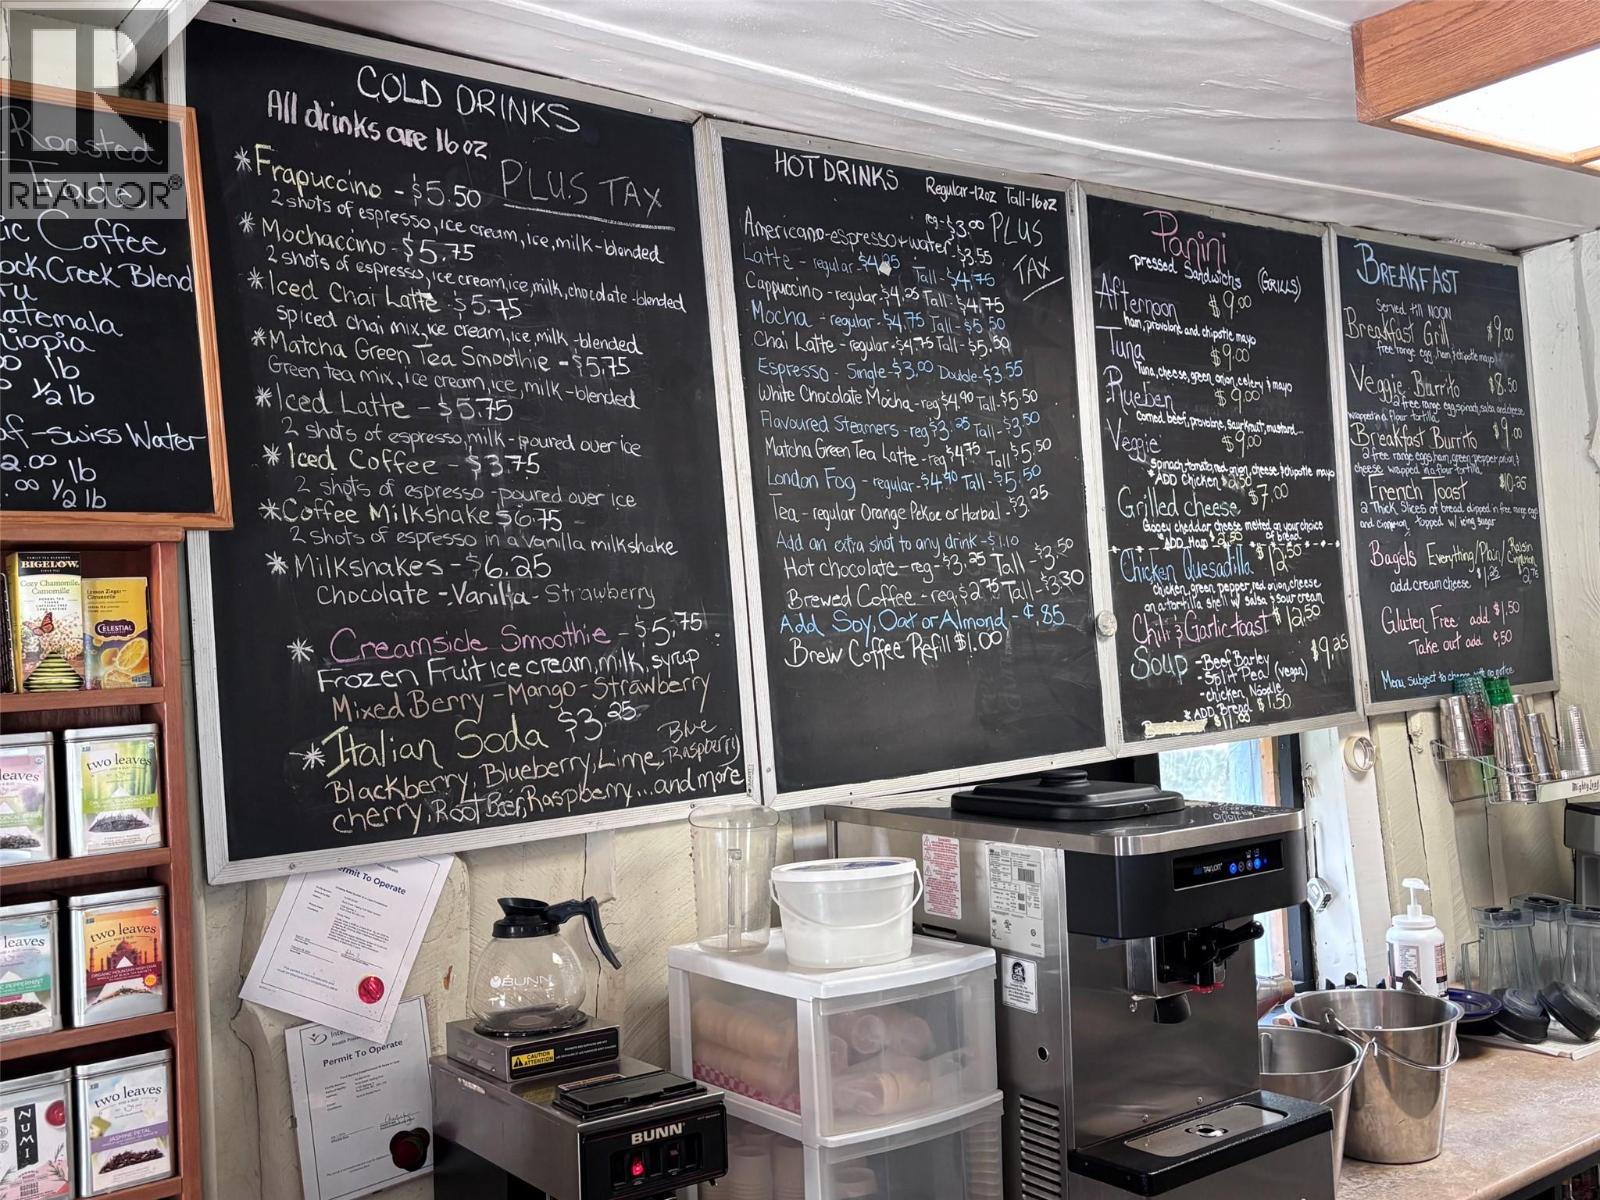 R
REALTOR®
Roasted
Trade
Coffee
Creek Blend
lb
1/2 lb
-Swiss Water
lb
1/2 lb
COLD DRINKS
All drinks are 16 oz
PLUS TAX
*Frapuccino - $5.50
2 shots of espresso, ice cream, ice, milk - blended
*Mochaccino - $5.75
2 shots of espresso, ice cream, ice, milk, chocolate - blended
*Iced Chai Latte - $5.75
spiced chai mix, ice cream, ice, milk - blended
*Matcha Green Tea Smoothie - $5.75
Green tea mix, ice cream, ice, milk - blended
*Iced Latte - $5.75
2 shots of espresso, milk - poured over ice
*Iced Coffee - $3.75
2 shots of espresso - poured over ice
*Coffee Milkshake $6.75 -
2 shots of espresso in a vanilla milkshake
*Milkshakes - $6.25
Chocolate - Vanilla - Strawberry
* Creamsicle Smoothie - $5.75
Frozen Fruit Ice cream, milk, syrup
Mixed Berry - Mango - Strawberry
* Italian Soda $3.25
Blackberry, Blueberry, Lime, Blue Raspberry
cherry, Root Beer, Raspberry... and more
HOT DRINKS Regular-12oz Tall-16oz
reg-$3.00 PLUS TAX
Americano-espresso+water $3.55
Latte - regular-$4.25 Tall-$4.75
Cappuccino-regular-$4.25 Tall-$4.75
Mocha - regular-$4.75 Tall-$5.50
Chai Latte - regular-$4.75 Tall-$5.50
Espresso - Single-$3.00 Double-$3.55
White Chocolate Mocha - reg $4.90 Tall-$5.50
Flavoured Steamers-reg $3.25 Tall-$3.50
Matcha Green Tea Latte - reg $4.75 Tall $5.50
London Fog - regular-$4.90 Tall-$5.50
Tea - regular Orange Pekoe or Herbal-$3.25
Add an extra shot to any drink-$1.10
Hot chocolate-reg-$3.25 Tall-$3.50
Brewed Coffee - reg $2.75 Tall-$3.30
Add Soy, Oat or Almond - ¢.85
Brew Coffee Refill $1.00
Panini
pressed Sandwichs (GRILLS)
Afternoon $9.00
ham, provolone and chipotle mayo
Tuna $9.00
Tuna, cheese, green onion, celery & mayo
Rueben $9.00
corned beef, provolone, saurkraut, mustard...
Veggie $9.00
*spinach, tomato, red onion, cheese & chipotle mayo
*ADD Chicken $2.50
Grilled cheese $7.00
Gooey cheddar cheese melted on your choice of bread
*ADD Ham $2.50
Chicken Quesadilla $12.50
chicken, green pepper, red onion, cheese
on a tortilla shell w/ salsa & sour cream
Chili & Garlic toast $12.50
Soup - Beef Barley $9.25
- Split Pea (vegan)
- chicken Noodle
*ADD Bread $1.50
$11.00
BREAKFAST
Served till NOON
Breakfast Grill $9.00
free range egg, ham & chipotle mayo
Veggie Burrito $8.50
2 free range egg, spinach, salsa, and cheese
wrapped in a flour tortilla
Breakfast Burrito $9.00
2 free range eggs, ham, green pepper, onion, &
cheese wrapped in a flour tortilla.
French Toast $10.25
2 Thick Slices of bread dipped in free range eggs
and cinnamon, topped w/ icing sugar
Bagels Everything/Plain/Raisin Cinnamon
add cream cheese $1.25 2.75
Gluten Free add $1.50
Take out add ¢.50
Menu subject to change with no notice
BIGELOW
Cozy Chamomile
Camomille
Lemon Zinger
CELESTIAL
two leaves
two leaves
two leaves
two leaves
ORGANIC PEPPERMINT
NUMI
two leaves
JASMINE PETAL
Permit To Operate
Permit To Operate
BUNN
CAUTION
ATTENTION
BUNN
TAYLOR